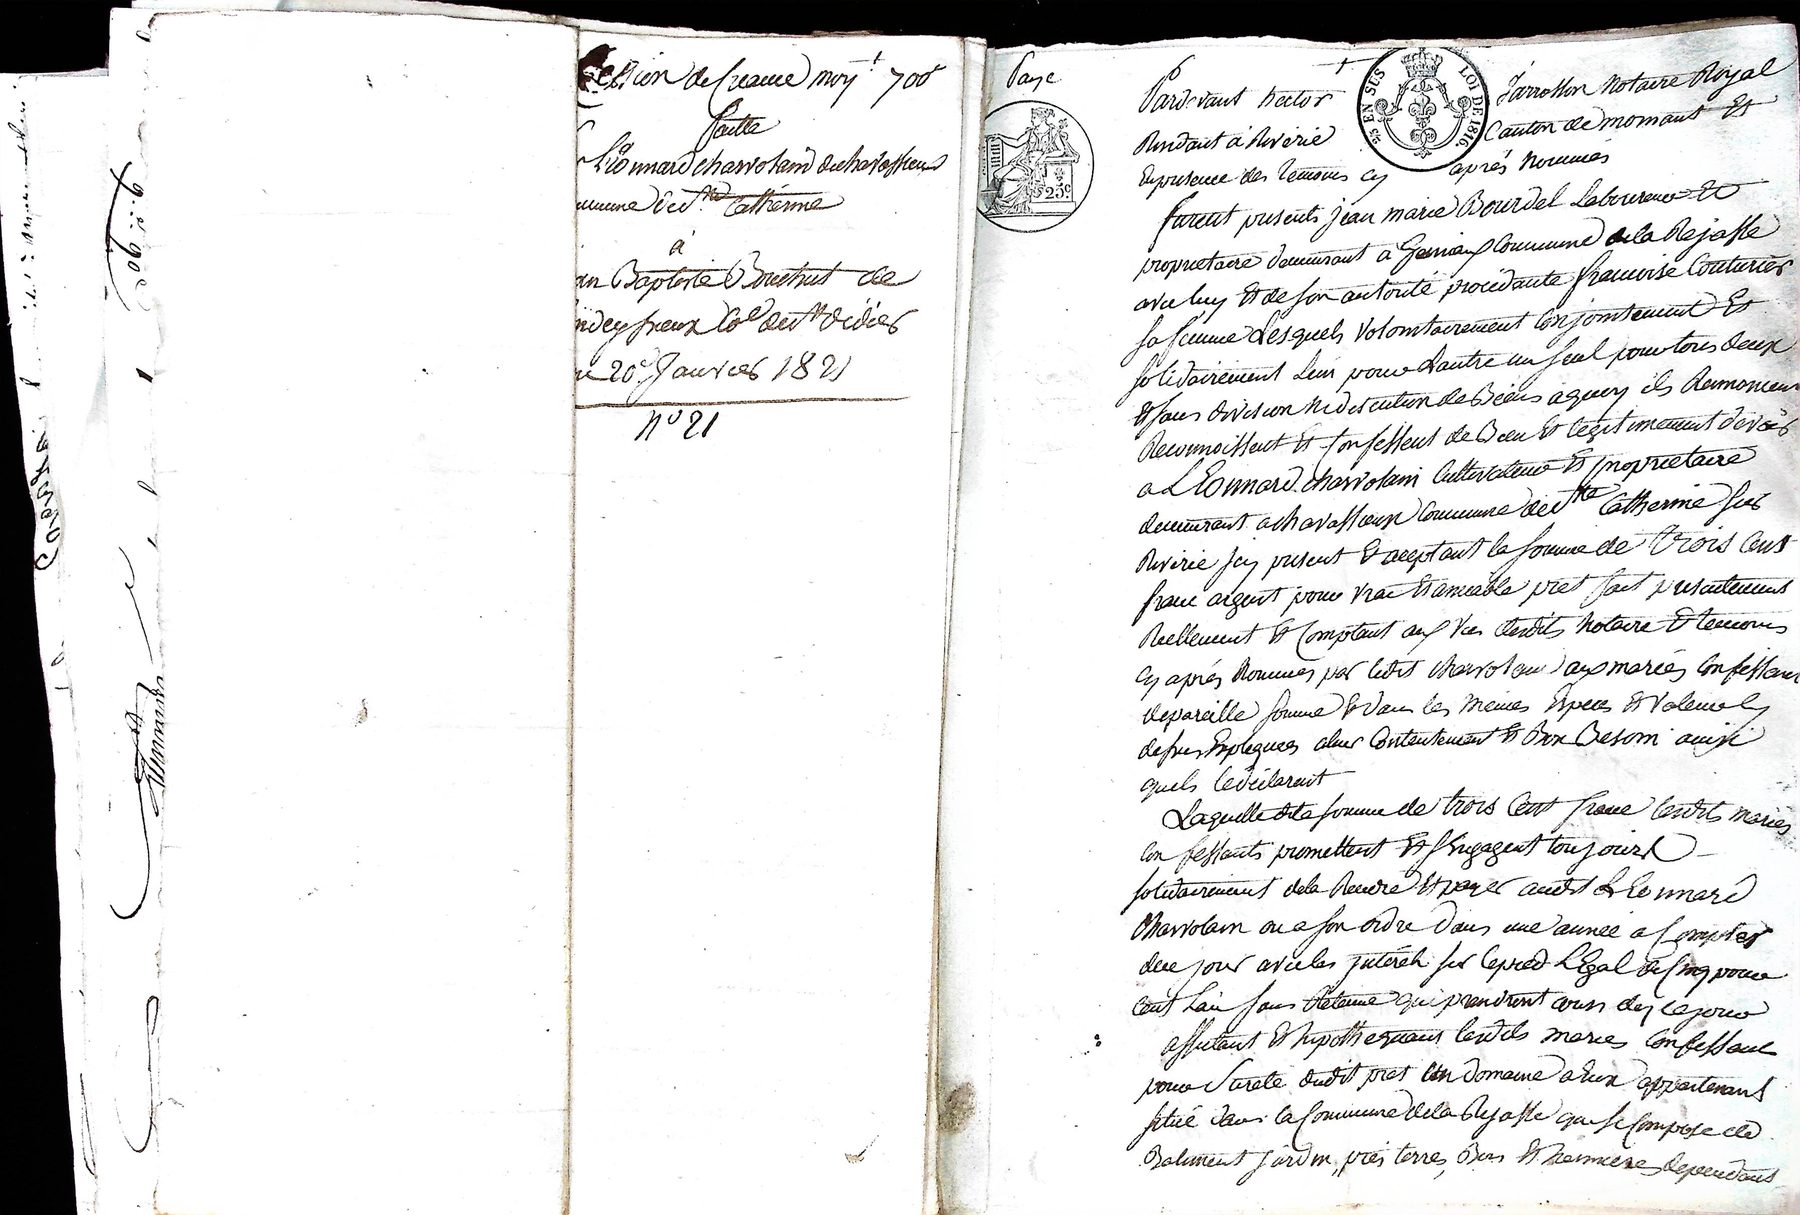 Cession de Creance moy.t 700f
faitte
Léonnard charvolain de chavassieux
commune de Ste Catherine
à
Jean Baptiste Bouchut de
ndeyfreux Coe de St Didier
Du 20e Janvier 1821
No 21
Paye
25c.
23 EN SUS
LOI DE 1816
Pardevant hector Jarrosson Notaire Royal
Residant à Riverie Canton de mornant Et
En presence des temoins cy après Nommés
furent presents jean marie Bourdel Laboureur Et
proprietaire demeurant à commune de la Rejasse
avec luy Et de son autorité procédante francoise Couturier
sa femme Lesquels volontairement Conjointement Et
solidairement L'un pour L'autre un seul pour tous deux
Et sans division Ni discution de Biens a quoy ils Renoncent
Reconnoissent Et Confessent de Bien Et légitimement devoir
a LEonnard charvolain Cultivateur Et proprietaire
demeurant a chavassieux Commune de Ste Catherine sur
Riverie Icy present Et acceptant la somme de trois Cent
franc argent pour vrai Et amiable pret fait presentement
Reellement Et Comptant aux vus desdits Notaire Et temoins
Cy après Nommés par ledit charvolain aux mariés Confessant
de pareille somme Et dans les mêmes Especes Et valeur
Expliquées a leur Contentement Et Besoin ainsi
quils le déclarent
Laquelle dite somme de trois Cent franc lesdits mariés
Confessants promettent Et s'Engagent toujours
solidairement de la Rendre Et payer audit LEonnard
Charvolain ou a son ordre Dans une année a Compter
de ce jour avec les jnterêts sur le pied LEgal de Cinq pour
Cent L'an sans Retenue qui prendront cours des ce jour
affectant Et hipothequant lesdits mariés Confessant
pour sureté dudit pret un Domaine a Eux appartenant
situé dans la Commune de la Rejasse qui se Compose de
Batiment jardin, prés terres, Bois Et hermières dependant